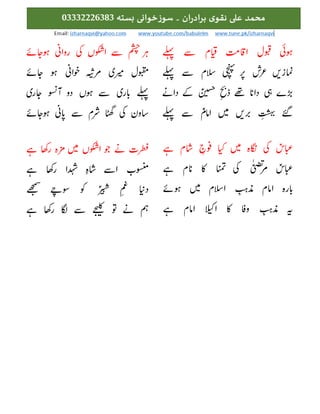 محمد علی نقوی برادران ۔ سوزخوانی بستہ 03332226383
Email: izharnaqvi@yahoo.com www.youtube.com/babulirlm www.tune.pk/izharnaqvi
ہوئی قبول اقامت قیام سے پہلے
نمازیں عرش پر پہنچی سلام سے پہلے
بڑے ہی دانا تھے ذبحِ حسینؑ کے دانے
گئے بہشتِ بریں میں امامؑ سے پہلے
ہر چشم سے اشکوں کی روانی ہوجائے
مقبول میری مرثیہ خوانی ہو جائے
پہلے باری سے ہوں دو آنسو جاری
ساون کی گھٹا شرم سے پانی ہوجائے
عباسؑ کی نگاہ میں کیا فوجِ شام ہے
عباسؑ مرتضیٰؑ کی تمنا کا نام ہے
بارہ امام مذہب اسلام میں ہوئے
یہ مذہب وفا کا اکیلا امام ہے
فطرت نے جو اشکوں میں مزہ رکھا ہے
منسوب اسے شاہِ شہدا رکھا ہے
دنیا غمِ شبیرؑ کو سوچے سمجھے
ہم نے تو کلیجے سے لگا رکھا ہے